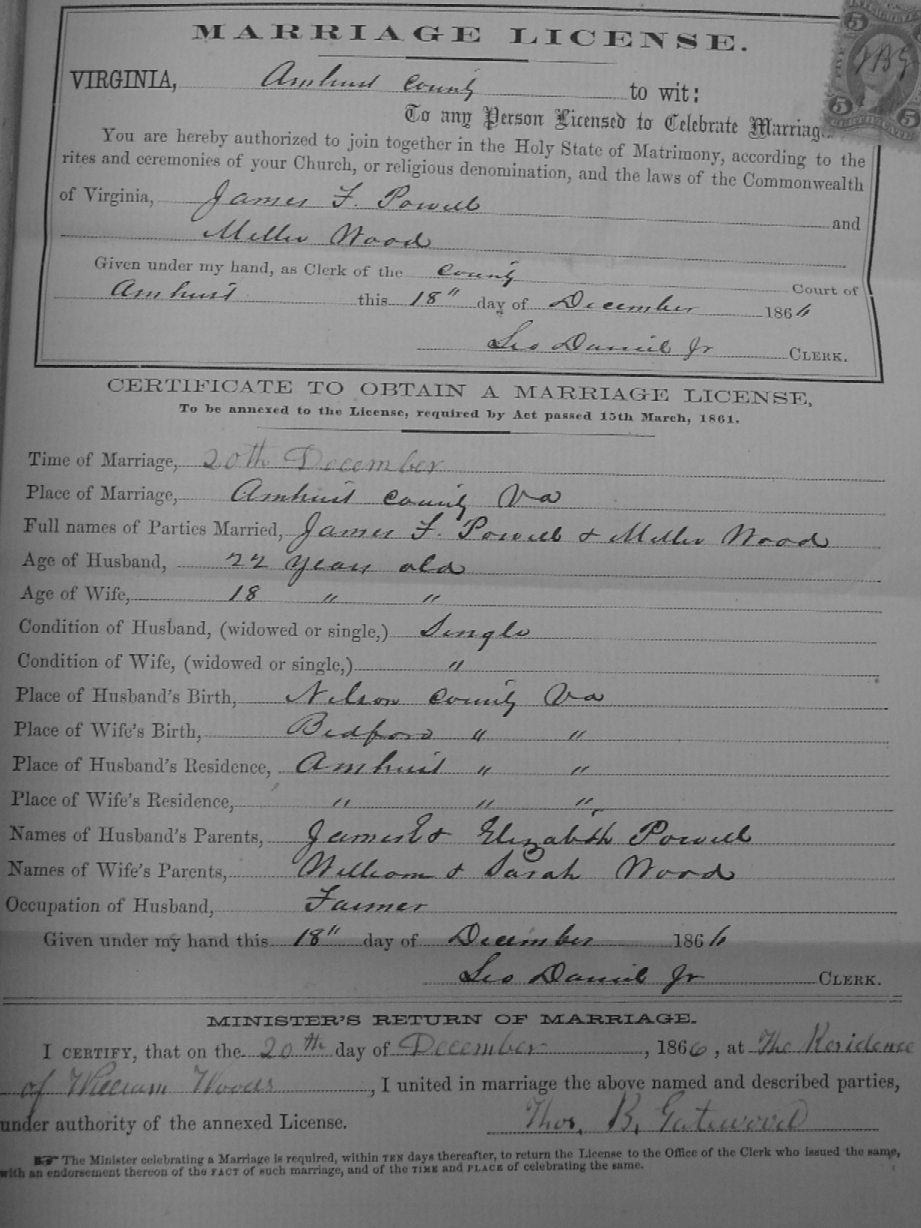 MARRIAGE LICENSE.
5 5
JBG
5 5
VIRGINIA, Amherst County to wit:
To any Person Licensed to Celebrate Marriag
You are hereby authorized to join together in the Holy State of Matrimony, according to the
rites and ceremonies of your Church, or religious denomination, and the laws of the Commonwealth
of Virginia, James F. Powell and
Miller Wood
Given under my hand, as Clerk of the County Court of
Amherst this 18" day of December 1866
Geo Daniel Jr CLERK.
CERTIFICATE TO OBTAIN A MARRIAGE LICENSE,
To be annexed to the License, required by Act passed 15th March, 1861.
Time of Marriage, 20th December
Place of Marriage, Amherst County Va
Full names of Parties Married, James F. Powell & Miller Wood
Age of Husband, 22 years old
Age of Wife, 18 " "
Condition of Husband, (widowed or single,) Single
Condition of Wife, (widowed or single,) "
Place of Husband's Birth, Nelson County Va
Place of Wife's Birth, Bedford " "
Place of Husband's Residence, Amherst " "
Place of Wife's Residence, " " "
Names of Husband's Parents, James E & Elizabeth Powell
Names of Wife's Parents, William & Sarah Wood
Occupation of Husband, Farmer
Given under my hand this 18" day of December 1866
Geo Daniel Jr CLERK.
MINISTER'S RETURN OF MARRIAGE.
I CERTIFY, that on the 20th day of December, 1866, at The Residence
of William Woods, I united in marriage the above named and described parties,
under authority of the annexed License. Thos. B. Gatewood
☞ The Minister celebrating a Marriage is required, within TEN days thereafter, to return the License to the Office of the Clerk who issued the same,
with an endorsement thereon of the FACT of such marriage, and of the TIME and PLACE of celebrating the same.